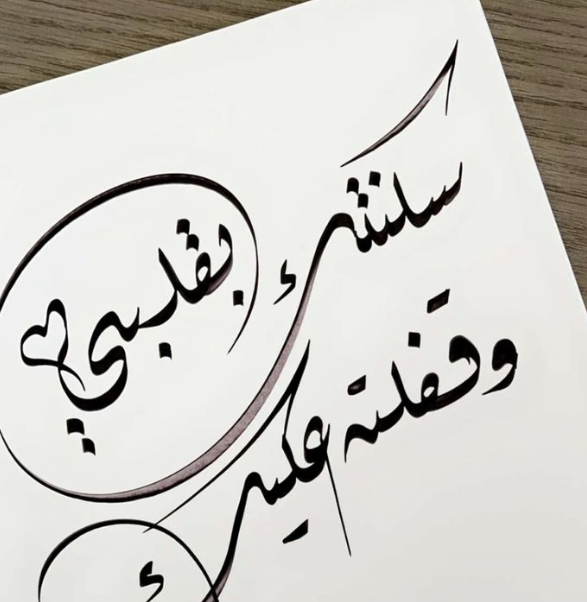 سكنتك بقلبي
وقفلته عليك